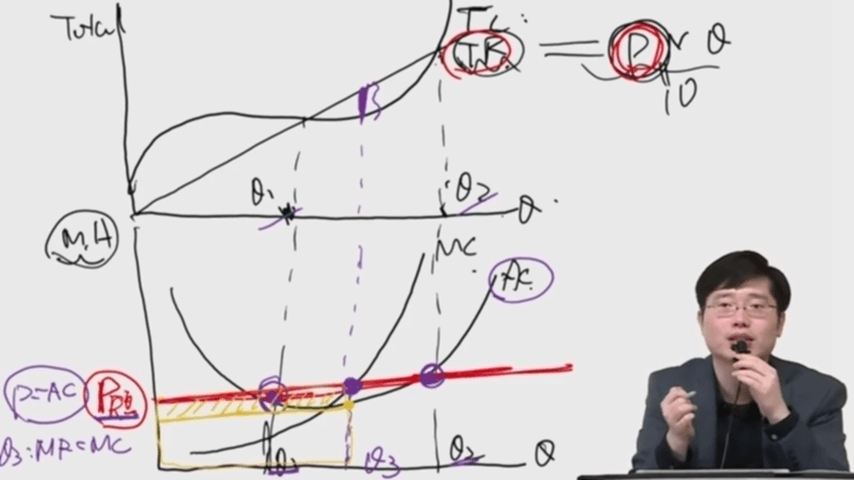 Total
TC
TR = P × Q
10
Q1
Q2
Q
MC
AC
P=AC
Q3: MR=MC
Q3
Q2
Q